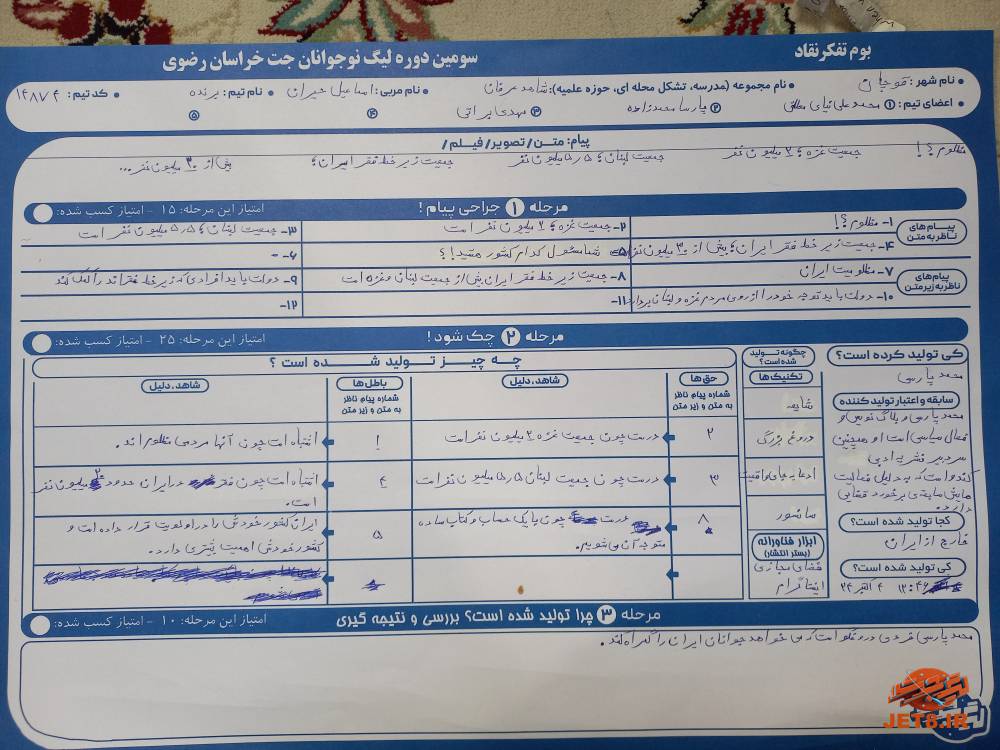 بوم تفکر نقاد
سومین دوره لیگ نوجوانان جت خراسان رضوی
نام شهر: قوچان
نام مجموعه (مدرسه، تشکل محله ای، حوزه علمیه): شاهد عرفان
نام مربی: اسماعیل حیران
نام تیم: برنده
کد تیم: 14874
اعضای تیم: ① محمد علی نیای مطلق ② پارسا محمدزاده ③ مهدی براتی ④ ⑤
پیام: متن/ تصویر/ فیلم/
مظلوم؟! جمعیت غزه؛ 2 میلیون نفر جمعیت لبنان؛ 5/5 میلیون نفر جمعیت زیر خط فقر ایران؛ بیش از 30 میلیون نفر...
مرحله 1 جراحی پیام!
امتیاز این مرحله: ۱۵ - امتیاز کسب شده:
پیام های ناظر به متن
۱- مظلوم؟!
۲- جمعیت غزه؛ 2 میلیون نفر است
۳- جمعیت لبنان؛ 5/5 میلیون نفر است
۴- جمعیت زیر خط فقر ایران؛ بیش از 30 میلیون نفر
۵- شما مسئول کدام کشور هستید!؟
۶- -
پیام های ناظر به زیر متن
۷- مظلومیت ایران
۸- جمعیت زیر خط فقر ایران بیش از جمعیت لبنان و غزه است
۹- دولت باید افرادی که زیر خط فقر اند را کمک کند
۱۰- دولت باید توجه خود را از روی مردم غزه و لبنان بردارد
۱۱-
۱۲-
مرحله 2 چک شود!
امتیاز این مرحله: ۲۵ - امتیاز کسب شده:
کی تولید کرده است؟
محمد پارسی
سابقه و اعتبار تولید کننده
محمد پارسی وبلاگ نویس و
فعال سیاسی است او همچنین
سردبیر نشریه ادبی
است که به دلیل فعالیت
هایش سابقه ی برخورد قضایی
دارد.
کجا تولید شده است؟
خارج از ایران
کی تولید شده است؟
13:46 4 اکتبر 24
چگونه تولید شده است؟
تکنیک ها
شایعه
دروغ بزرگ
ادعا به جای واقعیت
سانسور
ابزار فناورانه
(بستر انتشار)
فضای مجازی
اینستاگرام
چه چیز تولید شده است؟
حق ها
شماره پیام ناظر به متن و زیر متن
شاهد، دلیل
باطل ها
شماره پیام ناظر به متن و زیر متن
شاهد، دلیل
2
درست چون جمعیت غزه 2 میلیون نفر است
1
اشتباه است چون آنها مردمی مظلوم اند.
3
درست چون جمعیت لبنان 5/5 میلیون نفر است
4
اشتباه است چون فقر در ایران حدود میلیون نفر
است.
8
درست چون با یک حساب و کتاب ساده
متوجه آن می شویم.
5
ایران کشور خودش را در اولویت قرار داده است و
کشور خودش اهمیت بیشتری دارد.
مرحله 3 چرا تولید شده است؟ بررسی و نتیجه گیری
امتیاز این مرحله: ۱۰ - امتیاز کسب شده:
محمد پارسی فردی دروغگو است که می خواهد جوانان ایران را گمراه کند.
JET8.IR